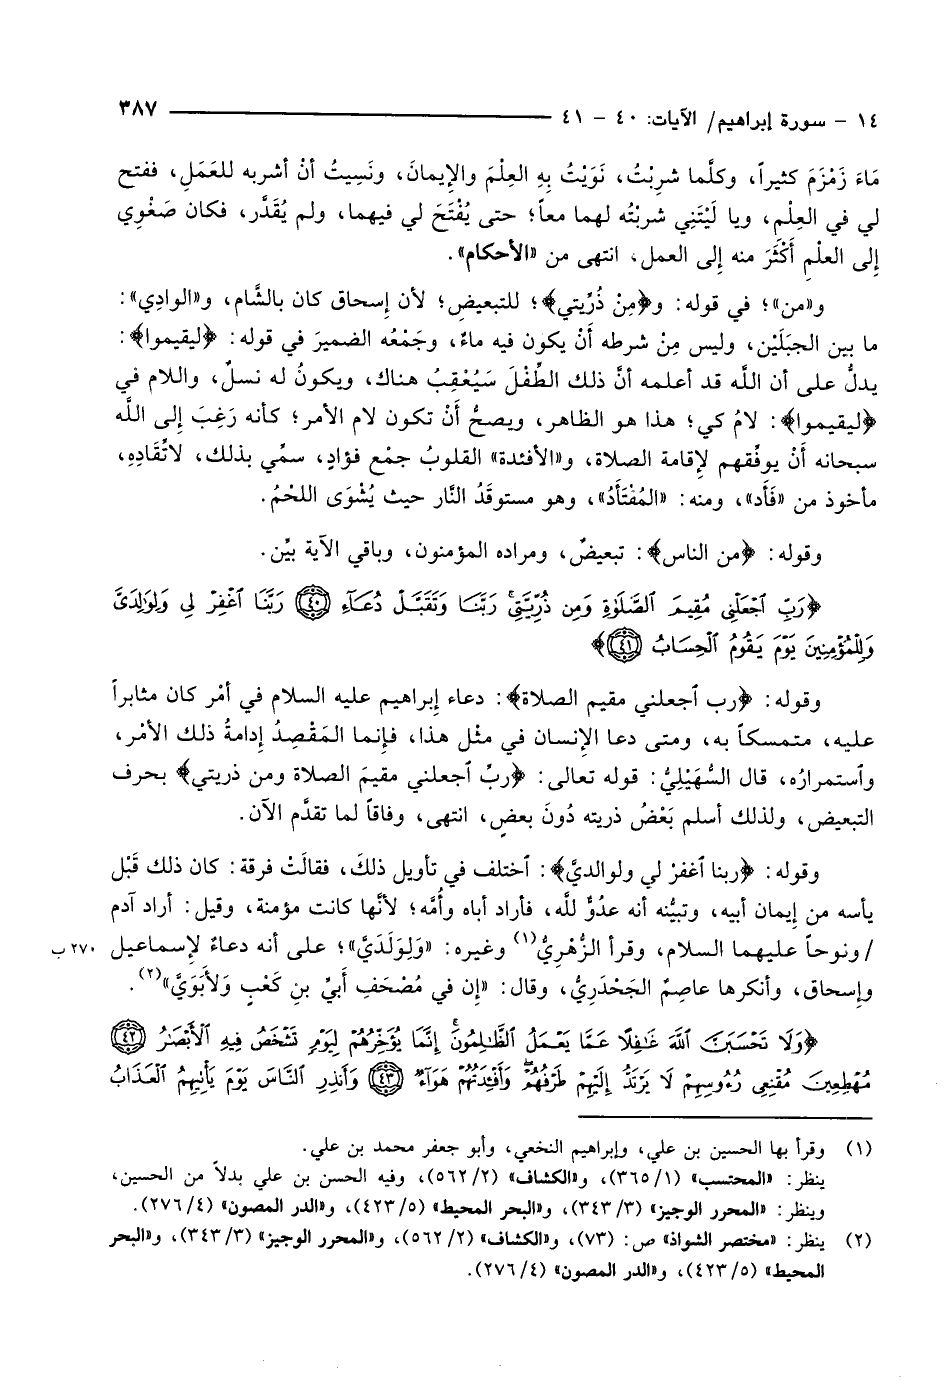 ١٤ - سورة إبراهيم/ الآيات: ٤٠ - ٤١ ٣٨٧
مَاءَ زَمْزَمَ كثيراً، وكلَّما شرِبْتُ، نَوَيْتُ بِهِ العِلْمَ والإِيمانَ، ونَسِيتُ أنْ أشربه للعَمَلِ، ففتح
لي في العِلْمِ، ويا لَيْتَنِي شربْتُه لهما معاً؛ حتى يُفْتَحَ لي فيهما، ولم يُقَدَّر، فكان صَغْوِي
إلى العلْمِ أَكْثَرَ منه إلى العمل، انتهى من «الأحكام».
و«من»؛ في قوله: و﴿مِنْ ذُرِّيتي﴾؛ للتبعيضِ؛ لأن إسحاق كان بالشَّام، و«الوادِي»:
ما بين الجبَلَيْن، وليس مِنْ شرطه أنْ يكون فيه ماءٌ، وجَمْعُه الضميرَ في قوله: ﴿ليقيموا﴾:
يدلُّ على أن اللَّه قد أعلمه أنَّ ذلك الطِّفْلَ سَيُعْقِبُ هناك، ويكونُ له نسلٌ، واللام في
﴿ليقيموا﴾: لامُ كي؛ هذا هو الظاهر، ويصحُّ أَنْ تكون لام الأمر؛ كأنه رَغِبَ إلى اللَّه
سبحانه أنْ يوفِّقهم لإقامة الصلاة، و«الأفئدة» القلوبُ جمْع فؤادٍ، سمِّي بذلك، لاتِّقَادِهِ،
مأخوذ من «فَأَد»، ومنه: «المُفْتَأَدُ»، وهو مستوقَدُ النَّار حيث يُشْوَى اللحْمُ.
وقوله: ﴿من الناس﴾: تبعيضٌ، ومراده المؤمنون، وباقي الآية بيِّن.
﴿رَبِّ ٱجْعَلْنِى مُقِيمَ ٱلصَّلَوٰةِ وَمِن ذُرِّيَّتِىۚ رَبَّنَا وَتَقَبَّلْ دُعَآءِ ﴿٤٠﴾ رَبَّنَا ٱغْفِرْ لِى وَلِوَٰلِدَىَّ
وَلِلْمُؤْمِنِينَ يَوْمَ يَقُومُ ٱلْحِسَابُ ﴿٤١﴾﴾
وقوله: ﴿رب ٱجعلني مقيم الصلاة﴾: دعاء إبراهيم عليه السلام في أمْر كان مثابراً
عليه، متمسكاً به، ومتى دعا الإنسان في مثْل هذا، فإنما المَقْصِدُ إدامةُ ذلك الأمْر،
وٱستمرارُه، قال السُّهَيْلِيُّ: قوله تعالى: ﴿ربِّ ٱجعلني مقيمَ الصلاة ومن ذريتي﴾ بحرف
التبعيض، ولذلك أسلم بَعْضُ ذريته دُونَ بعضٍ، انتهى، وفاقاً لما تقدَّم الآن.
وقوله: ﴿ربنا ٱغفرْ لي ولوالديَّ﴾: ٱختلف في تأويل ذلكَ، فقالَتْ فرقة: كان ذلك قَبْل
يأسه من إيمان أبيه، وتبيُّنه أنه عدوٌّ للَّه، فأراد أباه وأُمَّه؛ لأنَّها كانت مؤمنة، وقيل: أراد آدم
/ونوحاً عليهما السلام، وقرأ الزُّهْرِيُّ(١) وغيره: «وَلِوَلَدَيَّ»؛ على أنه دعاءٌ لإسماعيل ٢٧٠ ب
وإسحاق، وأنكرها عاصِمٌ الجَحْدَرِيُّ، وقال: «إن في مُصْحَفِ أُبَيِّ بنِ كَعْبٍ وَلأَبَوَيَّ»(٢).
﴿وَلَا تَحْسَبَنَّ ٱللَّهَ غَٰفِلًا عَمَّا يَعْمَلُ ٱلظَّٰلِمُونَۚ إِنَّمَا يُؤَخِّرُهُمْ لِيَوْمٍ تَشْخَصُ فِيهِ ٱلْأَبْصَٰرُ ﴿٤٢﴾
مُهْطِعِينَ مُقْنِعِى رُءُوسِهِمْ لَا يَرْتَدُّ إِلَيْهِمْ طَرْفُهُمْۖ وَأَفْـِٔدَتُهُمْ هَوَآءٌ ﴿٤٣﴾ وَأَنذِرِ ٱلنَّاسَ يَوْمَ يَأْتِيهِمُ ٱلْعَذَابُ
(١) وقرأ بها الحسين بن علي، وإبراهيم النخعي، وأبو جعفر محمد بن علي.
ينظر: «المحتسب» (٣٦٥/١)، و«الكشاف» (٥٦٢/٢)، وفيه الحسن بن علي بدلاً من الحسين،
وينظر: «المحرر الوجيز» (٣٤٣/٣)، و«البحر المحيط» (٤٢٣/٥)، و«الدر المصون» (٢٧٦/٤).
(٢) ينظر: «مختصر الشواذ» ص: (٧٣)، و«الكشاف» (٥٦٢/٢)، و«المحرر الوجيز» (٣٤٣/٣)، و«البحر
المحيط» (٤٢٣/٥)، و«الدر المصون» (٢٧٦/٤).